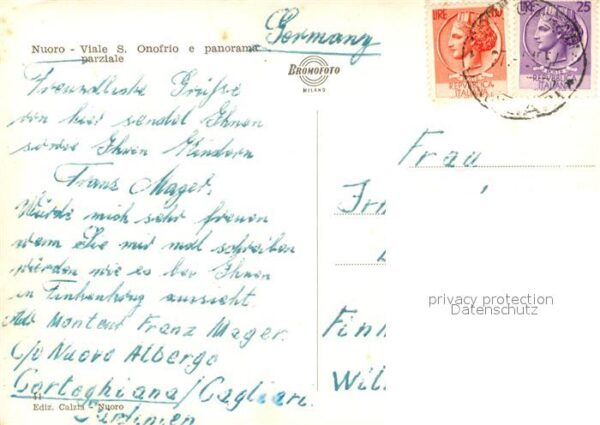 Germany
Nuoro - Viale S. Onofrio e panorama
parziale
BROMOFOTO
MILANO
Freundliche Grüße
von hier sendet Ihnen
sowie Ihren Kindern
Franz Mager.
Würde mich sehr freuen
wenn Sie mir mal schreiben
würden wie es bei Ihnen
in aussieht
Monteur Franz Mager.
C/o Nuovo Albergo
Corteghiana/Cagliari.
Sardinien
Ediz. Calzia - Nuoro
LIRE
REPVBBLICA
ITALIANA
LIRE 25
REPVBBLICA
ITALIANA
Frau
privacy protection
Datenschutz